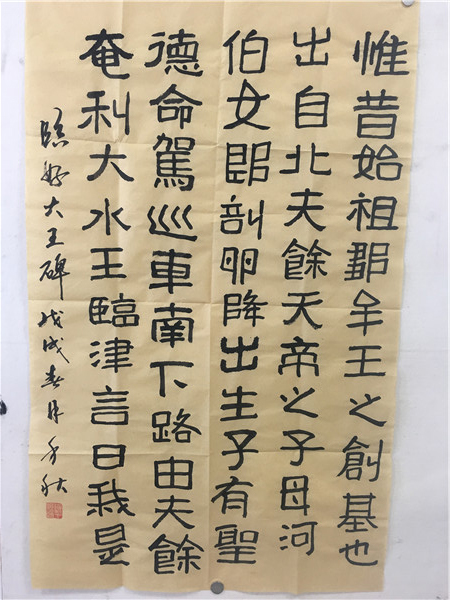 惟昔始祖鄒牟王之創基也
出自北夫餘天帝之子母河
伯女郎剖卵降出生子有聖
德命駕巡車南下路由夫餘
奄利大水王臨津言曰我是
臨好大王碑 戊戌春月